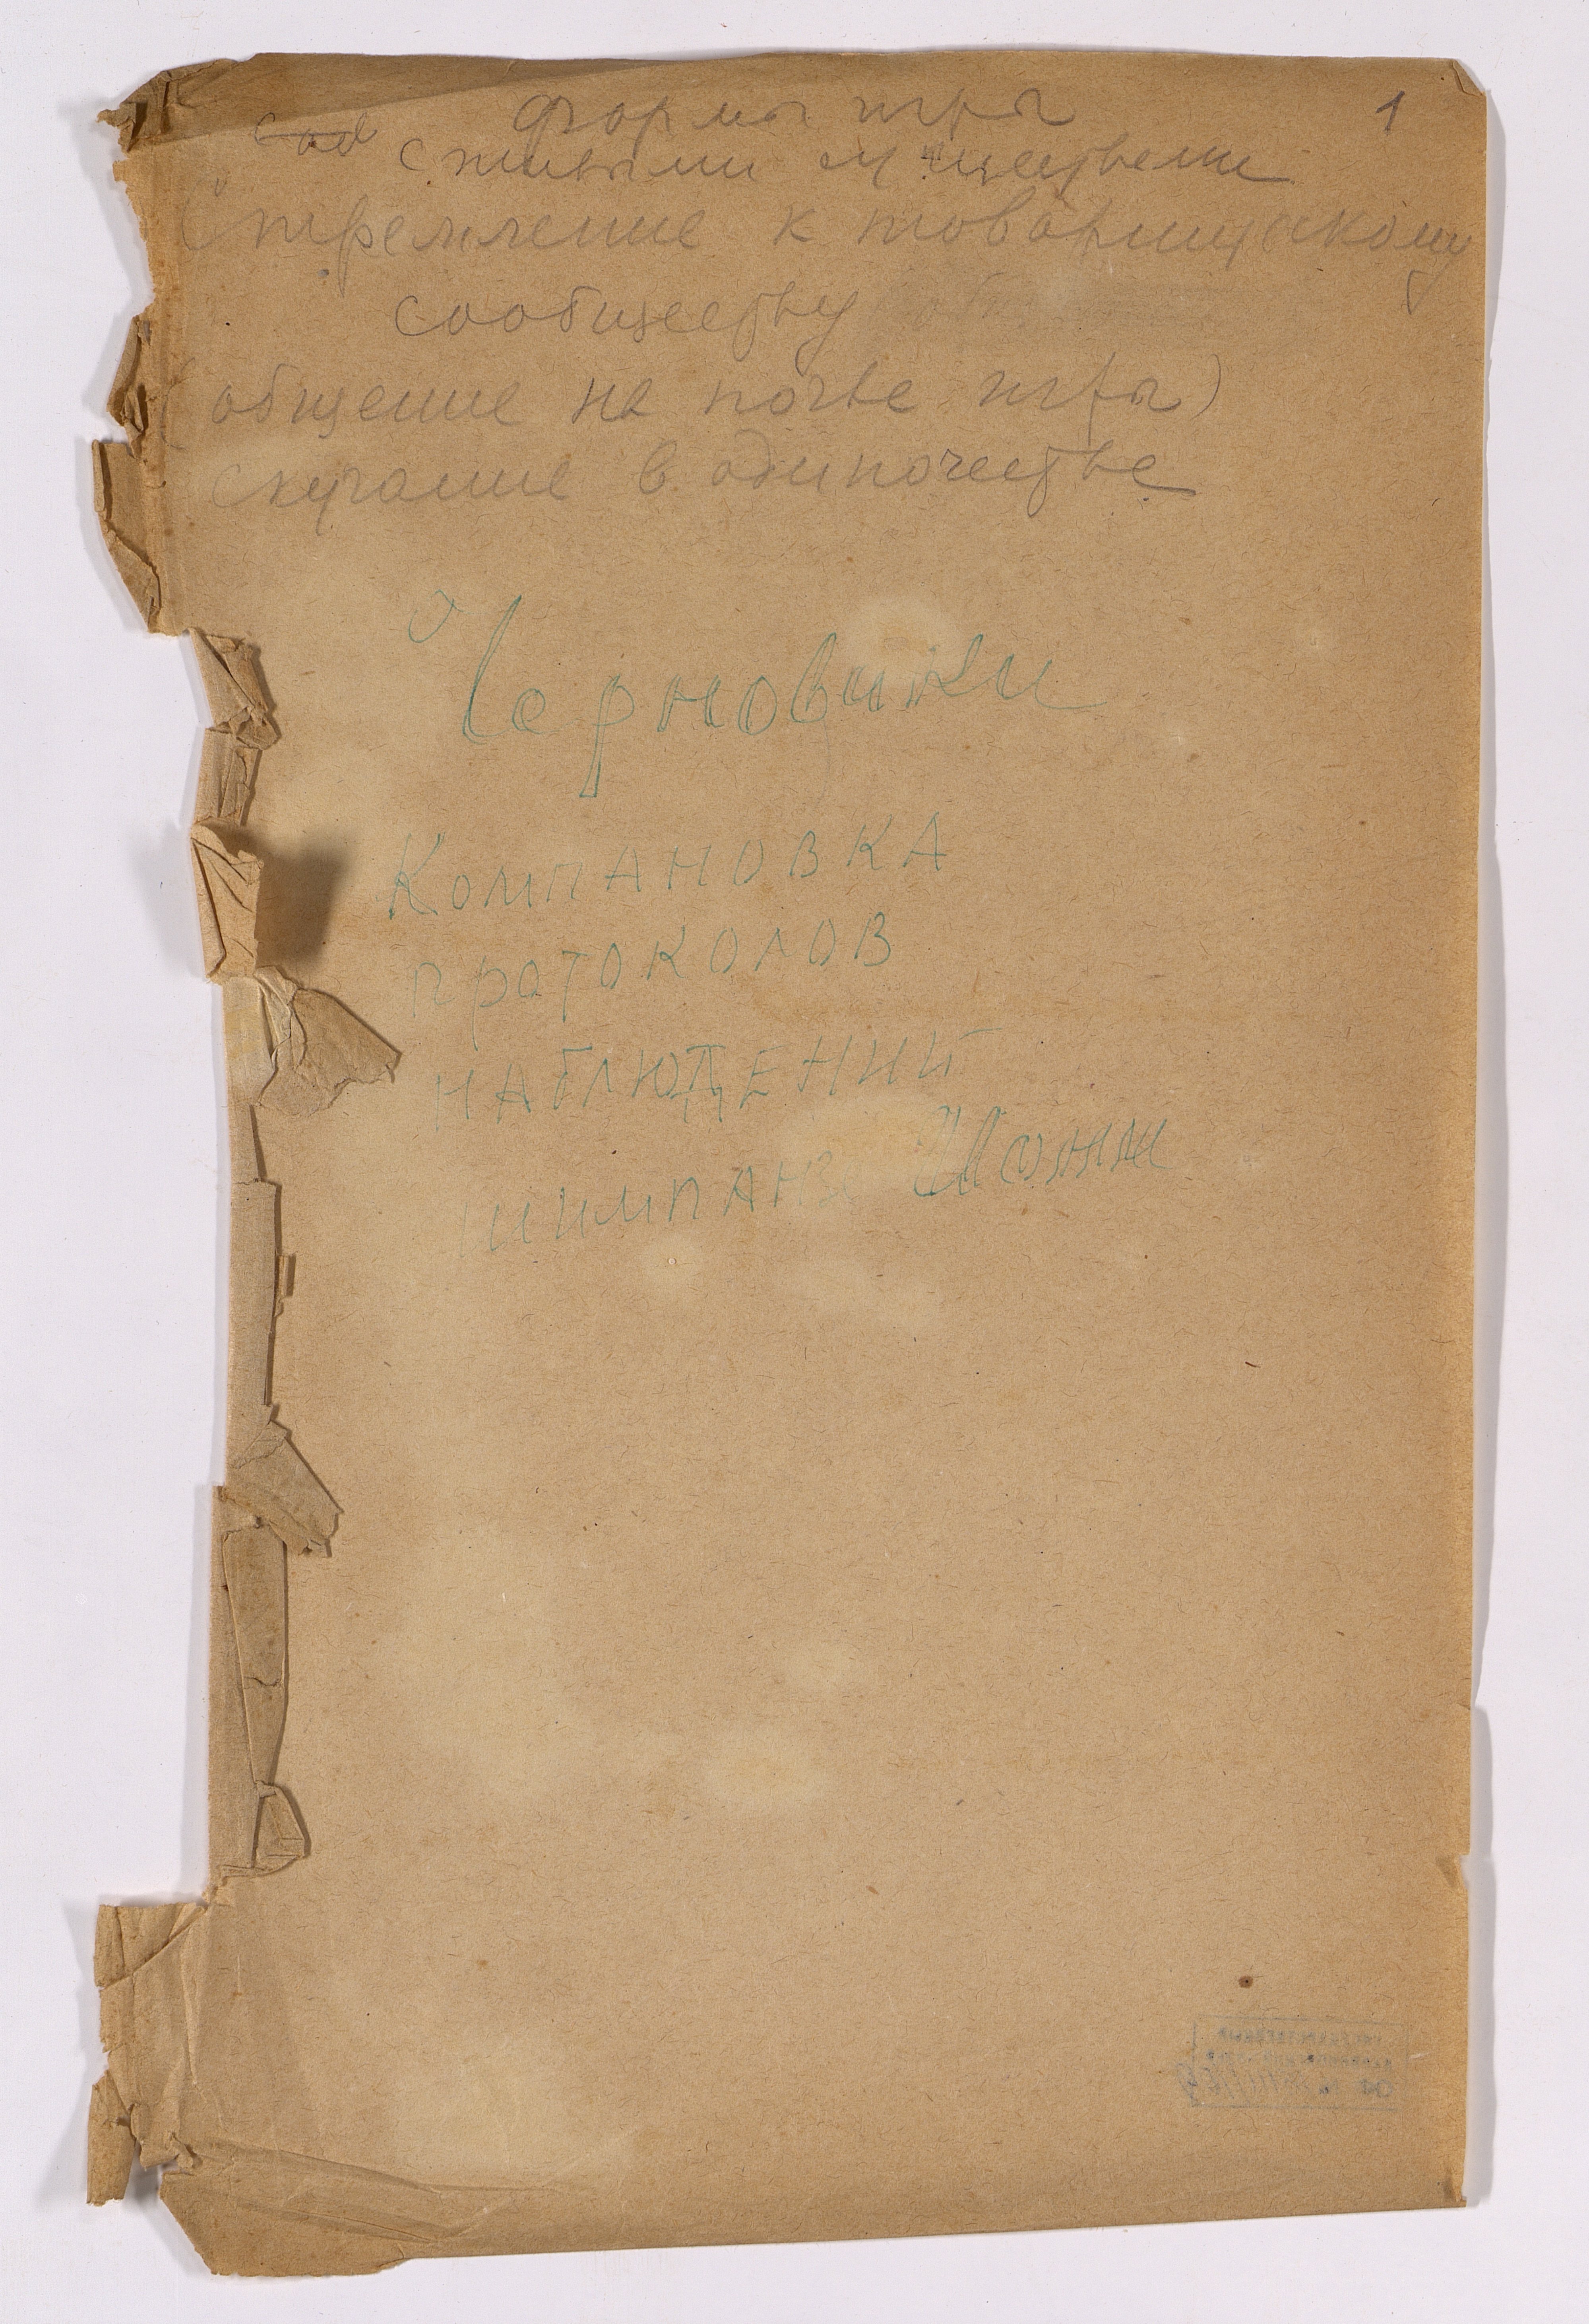 Формы игры 1
с живыми существами
Стремление к товарищескому
сообществу
(общение на почве игры)
Скучание в одиночестве
Черновики
Компановка
протоколов
наблюдений
шимпанзе Иони